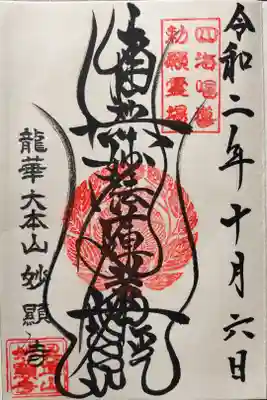 四海唱導
勅願霊場
令和二年十月六日
南無妙法蓮華経
龍華大本山妙顯寺